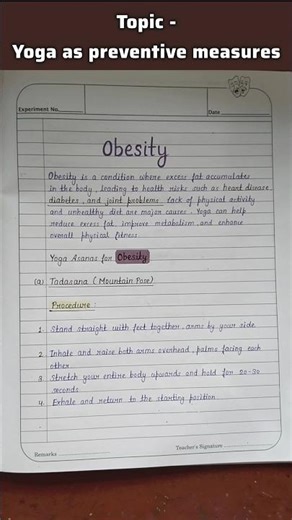 Topic -
Yoga as preventive measures
Experiment No.
Date
Obesity
Obesity is a condition where excess fat accumulates
in the body, leading to health risks such as heart disease,
diabetes, and joint problems. Lack of physical activity
and unhealthy diet are major causes. Yoga can help
reduce excess fat, improve metabolism, and enhance
overall physical fitness.
Yoga Asanas for Obesity
(a) Tadasana (Mountain Pose)
Procedure :
1. Stand straight with feet together, arms by your side.
2. Inhale and raise both arms overhead, palms facing each
other.
3. Stretch your entire body upwards and hold for 20-30
seconds.
4. Exhale and return to the starting position.
Teacher's Signature
Remarks